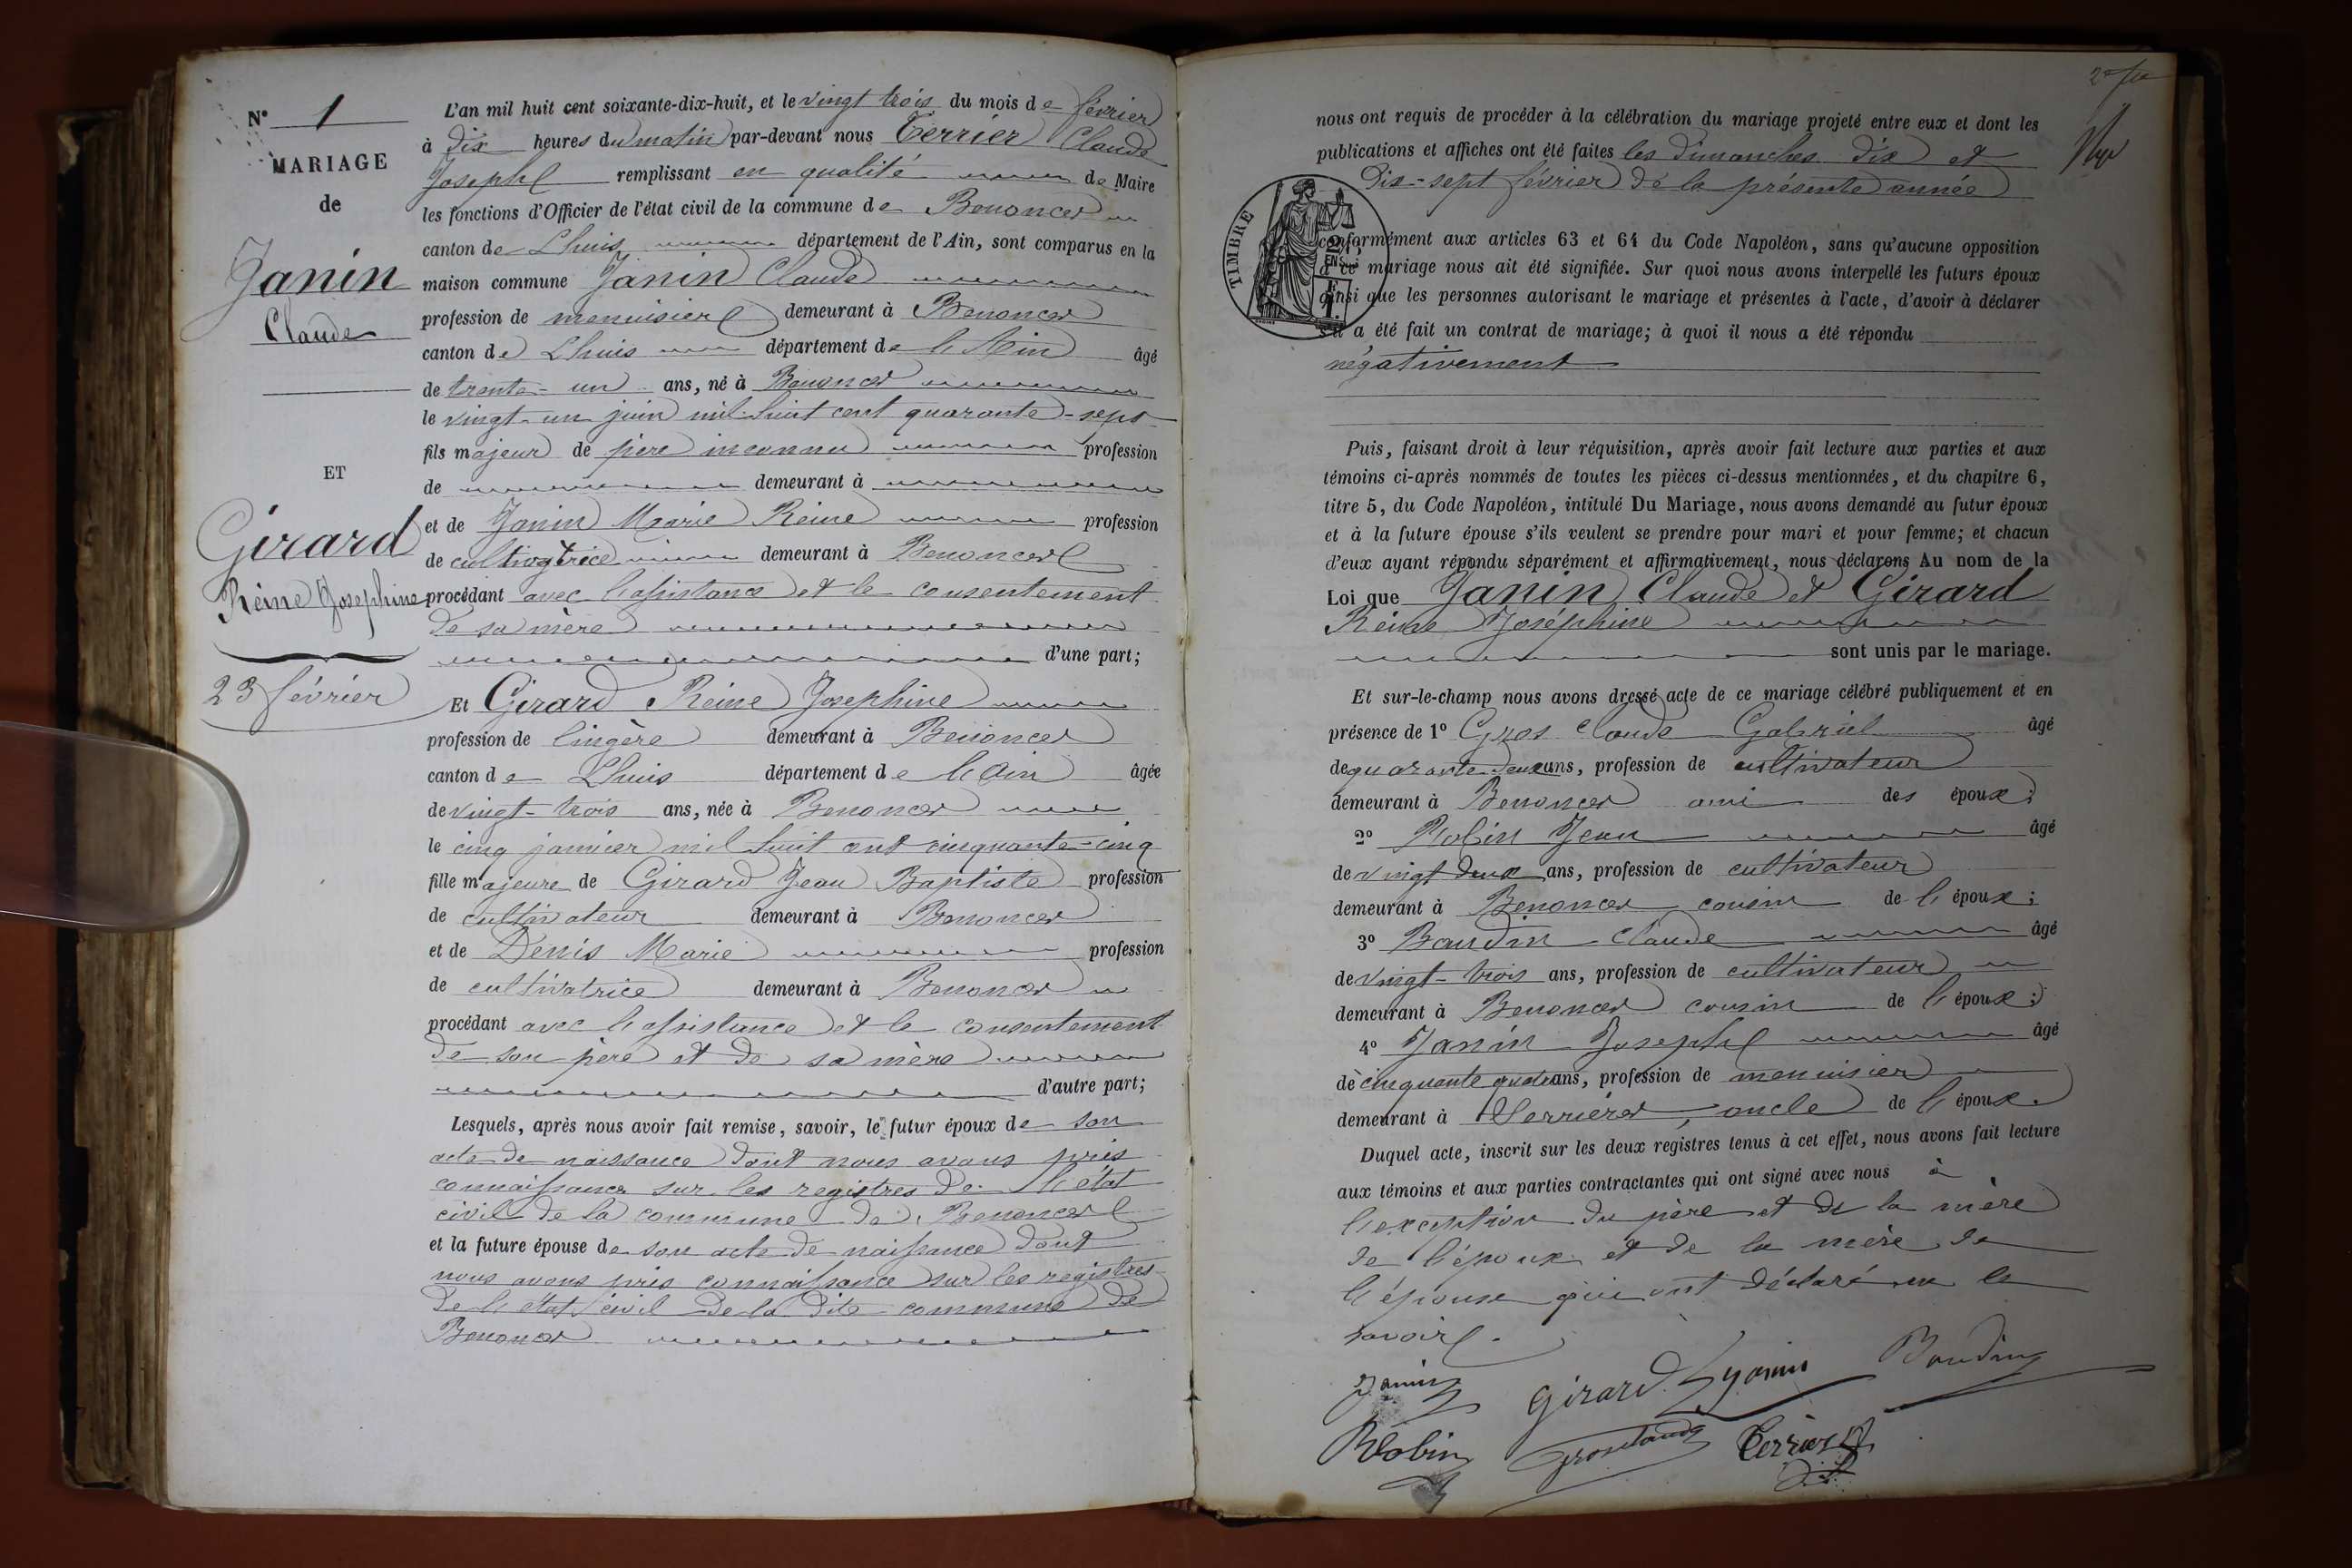 N° 1
MARIAGE
de
Janin
Claude
ET
Girard
Reine Josephine
23 février
L'an mil huit cent soixante-dix-huit, et le vingt trois du mois de février
à dix heures du matin par-devant nous Terrier Claude
Joseph remplissant en qualité de Maire
les fonctions d'Officier de l'état civil de la commune de Benonces
canton de Lhuis département de l'Ain, sont comparus en la
maison commune Janin Claude
profession de menuisier demeurant à Benonces
canton de Lhuis département de l'Ain âgé
de trente-un ans, né à Benonces
le vingt-un juin mil huit cent quarante-sept
fils majeur de père inconnu profession
de demeurant à
et de Janin Marie Reine profession
de cultivatrice demeurant à Benonces
procédant avec l'assistance et le consentement
de sa mère
d'une part;
Et Girard Reine Josephine
profession de lingère demeurant à Benonces
canton de Lhuis département de l'Ain âgée
de vingt-trois ans, née à Benonces
le cinq janvier mil huit cent cinquante-cinq
fille majeure de Girard Jean Baptiste profession
de cultivateur demeurant à Benonces
et de Denis Marie profession
de cultivatrice demeurant à Benonces
procédant avec l'assistance et le consentement
de son père et de sa mère
d'autre part;
Lesquels, après nous avoir fait remise, savoir, le futur époux de son
acte de naissance dont nous avons pris
connaissance sur les registres de l'état
civil de la commune de Benonces
et la future épouse de son acte de naissance dont
nous avons pris connaissance sur les registres
de l'état civil de la dite commune de
Benonces
nous ont requis de procéder à la célébration du mariage projeté entre eux et dont les
publications et affiches ont été faites les dimanches dix et
dix-sept février de la présente année
TIMBRE
conformément aux articles 63 et 64 du Code Napoléon, sans qu'aucune opposition
à ce mariage nous ait été signifiée. Sur quoi nous avons interpellé les futurs époux
ainsi que les personnes autorisant le mariage et présentes à l'acte, d'avoir à déclarer
s'il a été fait un contrat de mariage; à quoi il nous a été répondu
négativement
Puis, faisant droit à leur réquisition, après avoir fait lecture aux parties et aux
témoins ci-après nommés de toutes les pièces ci-dessus mentionnées, et du chapitre 6,
titre 5, du Code Napoléon, intitulé Du Mariage, nous avons demandé au futur époux
et à la future épouse s'ils veulent se prendre pour mari et pour femme; et chacun
d'eux ayant répondu séparément et affirmativement, nous déclarons Au nom de la
Loi que Janin Claude et Girard
Reine Joséphine
sont unis par le mariage.
Et sur-le-champ nous avons dressé acte de ce mariage célébré publiquement et en
présence de 1° Gros Claude Gabriel âgé
de quarante deux ans, profession de cultivateur
demeurant à Benonces ami des époux;
2° Robin Jean âgé
de vingt deux ans, profession de cultivateur
demeurant à Benonces cousin de l'époux;
3° Baudin Claude âgé
de vingt-trois ans, profession de cultivateur
demeurant à Benonces cousin de l'époux;
4° Janin Joseph âgé
de cinquante quatre ans, profession de menuisier
demeurant à Serrières, oncle de l'époux.
Duquel acte, inscrit sur les deux registres tenus à cet effet, nous avons fait lecture
aux témoins et aux parties contractantes qui ont signé avec nous à
l'exception du père et de la mère
de l'époux et de la mère de
l'épouse qui ont déclaré ne le
savoir.
Janin Girard Janin Baudin
Robin Gros Claude Terrier